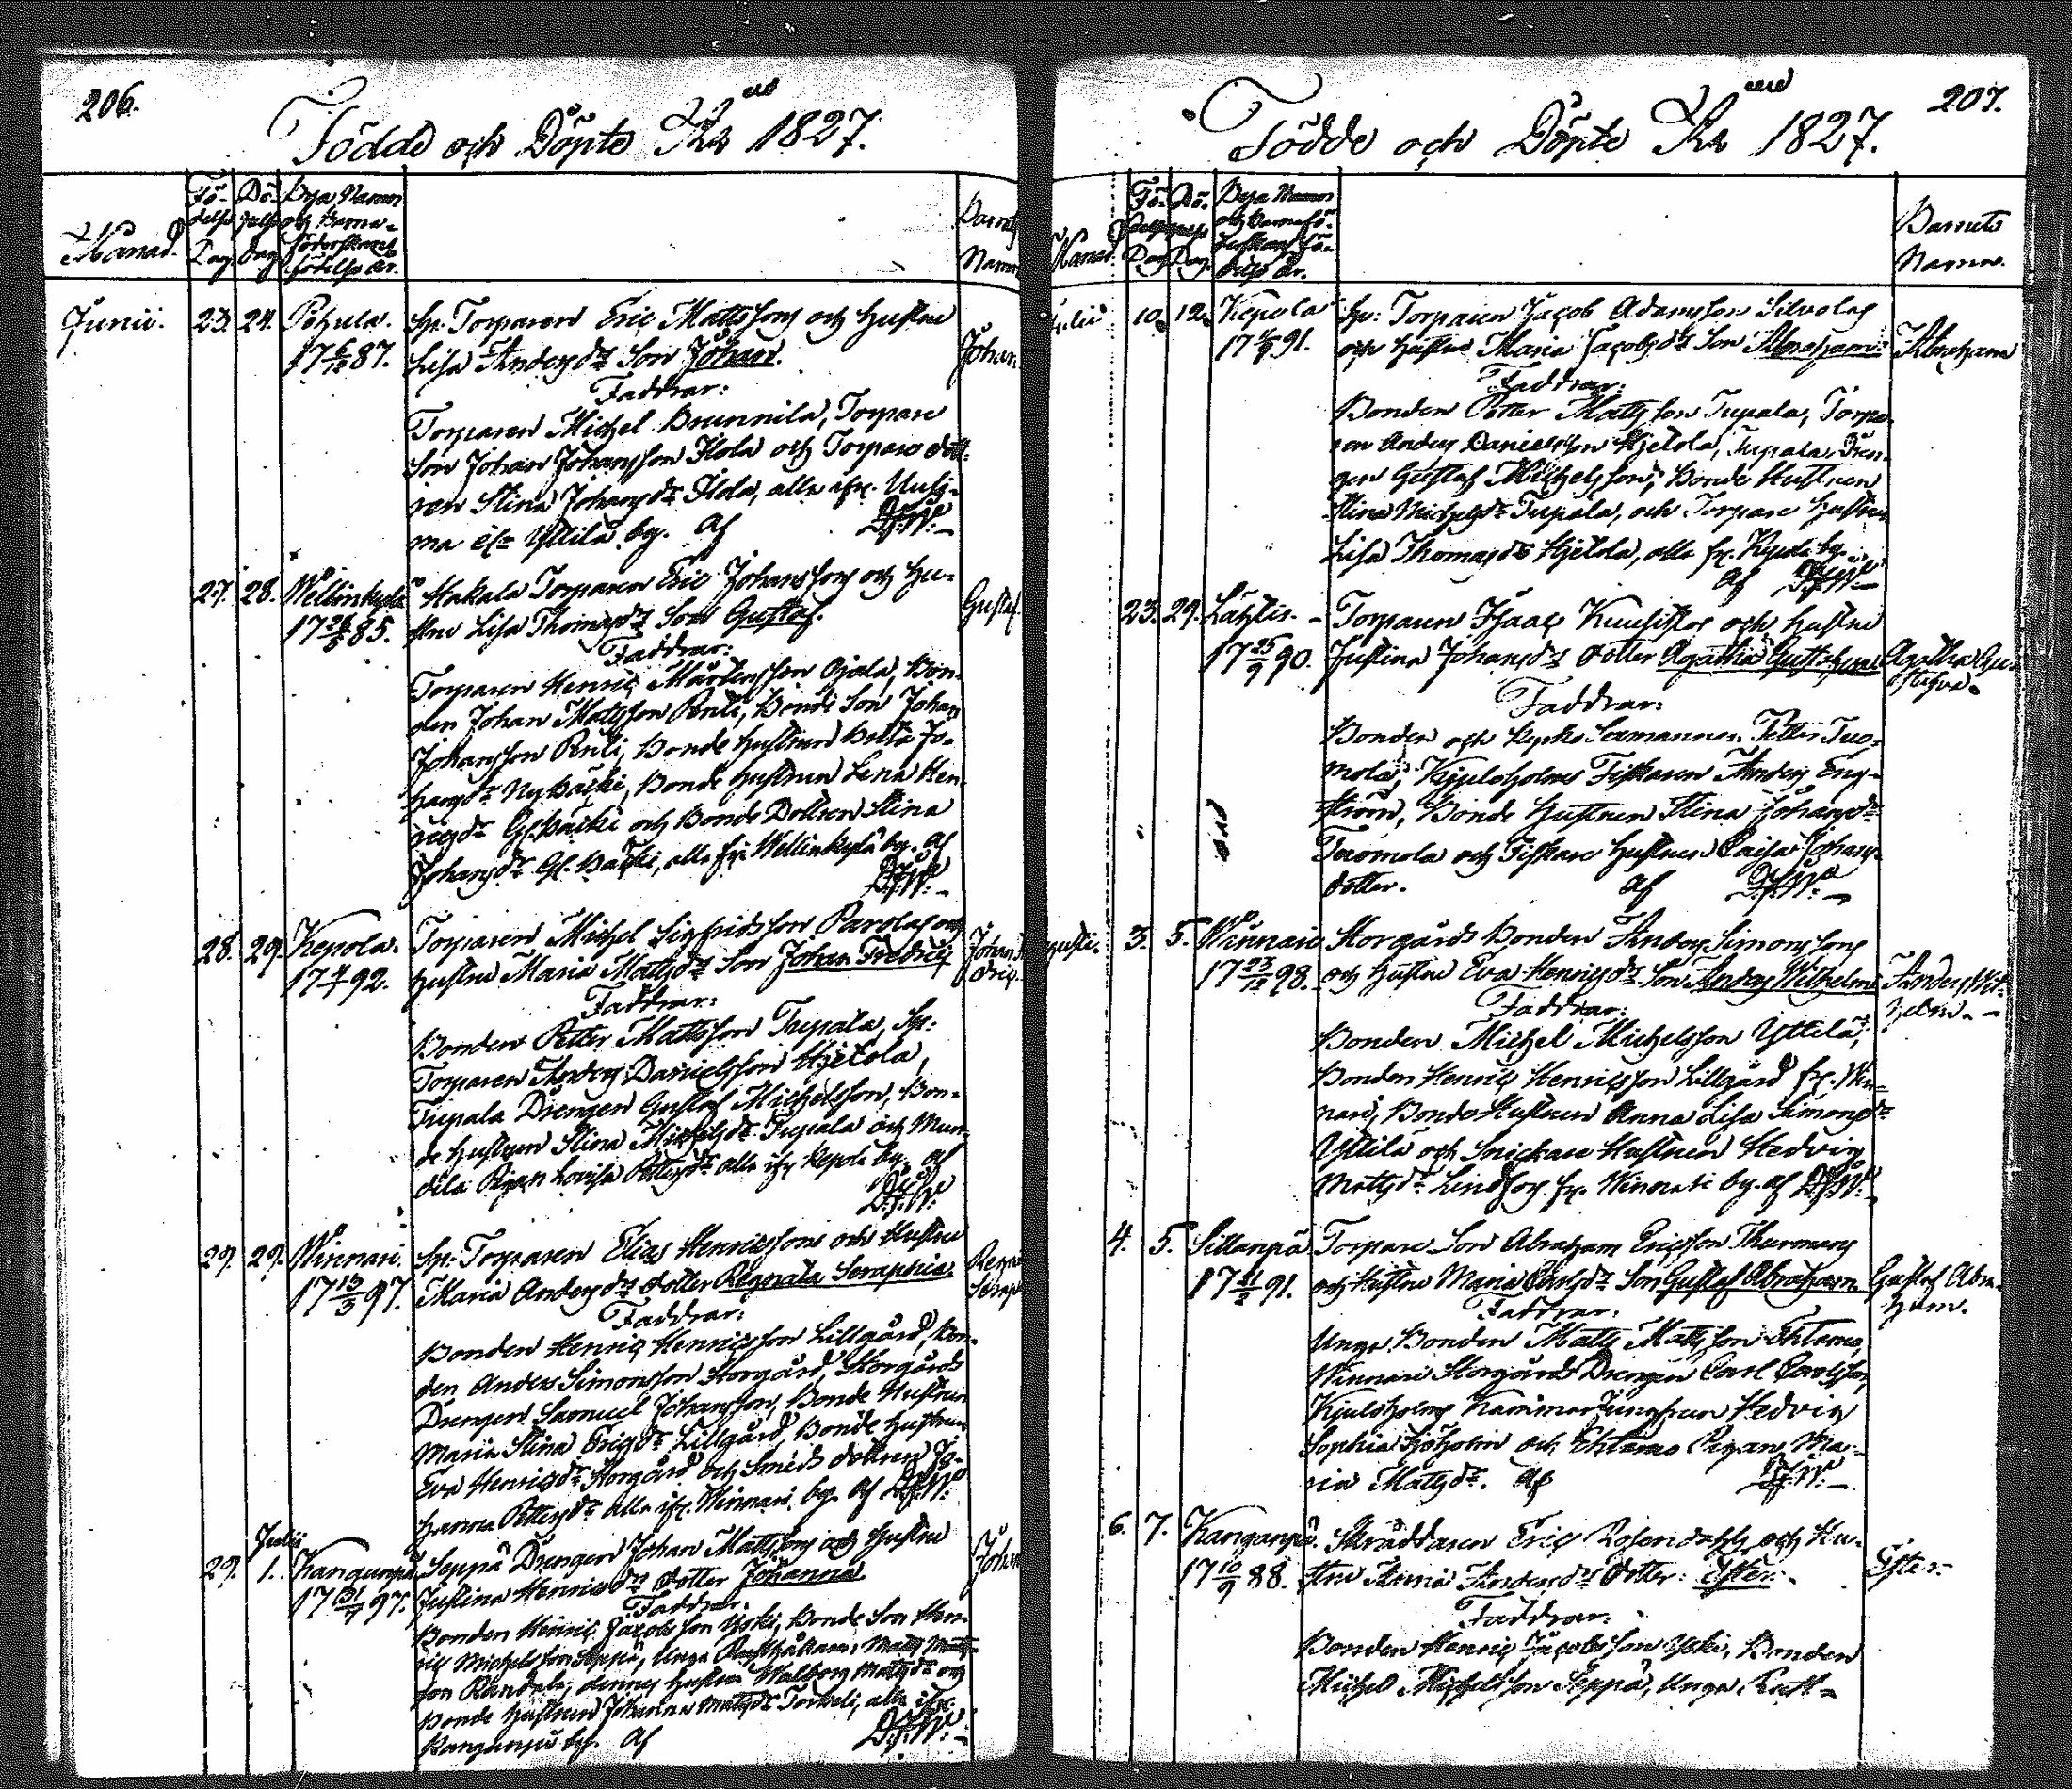 206.
Födde och Döpte År 1827.
Månad.
Fö-
delse
Dag.
Dö-
pelse
dag
Bya Namn
och Barna-
föderskans
födelse år.
Barnets
Namn
Junii. 23. 24. Pohula. Sp: Torparen Eric Mattssons och hustru
17 6/12 87. Lisa Andersdr Son Johan. Johan
Faddrar:
Torparen Michel Brunnila, Torpare
Son Johan Johansson Flola och Torpare dott-
ren Stina Johansdr Flola, alla ifr.
Yttilä by. Af
27. 28. Wellinkylä Hakala Torparen Eric Johanssons och Hu-
17 85. stru Lisa Thomasdr Son Gustaf. Gustaf
Faddrar:
Torparen Henric Mårtensson Ojala, Bon-
den Johan Mattsson Penti, Bonde Son Johan
Johansson Penti, Bonde hustrun Jo-
hansdr Nybäcki, Bonde hustrun Lena Hen-
ricsdr Gl.bäcki och Bonde Dottren Stina
Johansdr Gl. bäcki, alla fr. Wellinkylä by. af
28. 29. Kepola. Torparen Michel Sigfridsson Parolas och
17 92. hustru Maria Mattsdr Son Johan Fredric Johan
dric.
Faddrar:
Bonden Petter Mattsson Tupala, Sp:
Torparen Anders Danielsson Hjetola,
Tupala Drengen Gustaf Michelsson, Bon-
de hustrun Stina Michelsdr Tupala och Mun-
dila Pigan Lovisa Pettersdr alla ifr Kepola by. af
29. 29. Winnari. Sp: Torparen Elias Henricssons och Hustru
17 13/3 97. Maria Andersdr dotter Regnata Seraphia.
Faddrar:
Bonden Henric Henricsson Lillgård, Bon-
den Anders Simonsson Storgård, Storgårds
Drengen Samuel Johansson, Bonde Hustrun
Maria Stina Ericsdr Lillgård, Bonde hustrun
Eva Henricsdr Storgård och Smeds dottren Jo-
hanna Pettersdr alla ifr. Winnari by. af
Julii
29. 1. Kanganpä Seppä Drengen Johan Mattssons och hustru
17 97. Justina Henricsdr dotter Johanna.
Faddrar.
Bonden Henric Jacobsson Yski, Bonde Son Hen-
ric Michelsson Seppä, Unga Rusthållaren Matts Matts-
son Randala, dennes hustru Walborg Mattsdr och
Bonde hustrun Johanna Mattsdr Torkeli, alla ifr.
Kanganpä by. af
207.
Födde och Döpte År 1827.
Månad.
Fö-
delse
Dag
Dö-
pelse
Dag.
Bya Namn
och Barnafö-
derskans fö-
delse år.
Barnets
Namn.
Julii 10. 12. Kepola Sp: Torparen Jacob Adamsson Silvolas
17 91. och hustru Maria Jacobsdr Son Abraham. Abraham
Faddrar:
Bonden Petter Mattsson Tupala, Torpa-
ren Anders Danielsson Hjetola, Tupala Dren-
gen Gustaf Michelsson, Bonde Hustrun
Stina Michelsdr Tupala, och Torpare hustrun
Lisa Thomasdr Hjetola, alla fr. Kepola by.
af
23. 29. Lähtis. Torparen Isaac Kuusistos och hustru
17 25/9 90. Justina Johansdr dotter Agatha Gustafva. Agatha Gu-
stafva.
Faddrar:
Bonden och Kyrko Sexmannen Petter Tuo-
mola, Kjuloholms Fiskaren Anders Eng-
ström, Bonde Hustrun Stina Johansdr
Tuomola och Fiskare hustrun Caisa Johans-
dotter. af
Augusti. 3. 5. Winnari Storgårds Bonden Anders Simonssons
17 23/12 98. och hustru Eva Henricsdr Son Anders Wilhelm. Anders Wil-
helm.
Faddrar:
Bonden Michel Michelsson Yttilä,
Bonden Henric Henricsson Lillgård fr. Win-
nari, Bonde Hustrun Anna Lisa Simonsdr
Yttilä och Snickare Hustrun Hedvig
Mattsdr Lindfors fr. Winnari by. af
4. 5. Sillanpä Torpare Son Abraham Ericsson Thurmans
17 91. och Hustru Maria Carlsdr Son Gustaf Abraham. Gustaf Abra-
ham.
Faddrar:
Unga Bonden Matts Mattsson Ehtamo,
Winnari Storgårds Drengen Carl Carlsson,
Kjuloholms Kammarjungfrun Hedvig
Sophia Sjöholm och Ehtamo Pigan Ma-
ria Mattsdr. af
6. 7. Kanganpä. Skräddaren Eric Rosendahls och Hu-
17 10/9 88. stru Anna Andersdr dotter: Ester. Ester.
Faddrar:
Bonden Henric Jacobsson Yski, Bonden
Michel Michelsson Seppä, Unga Rust-